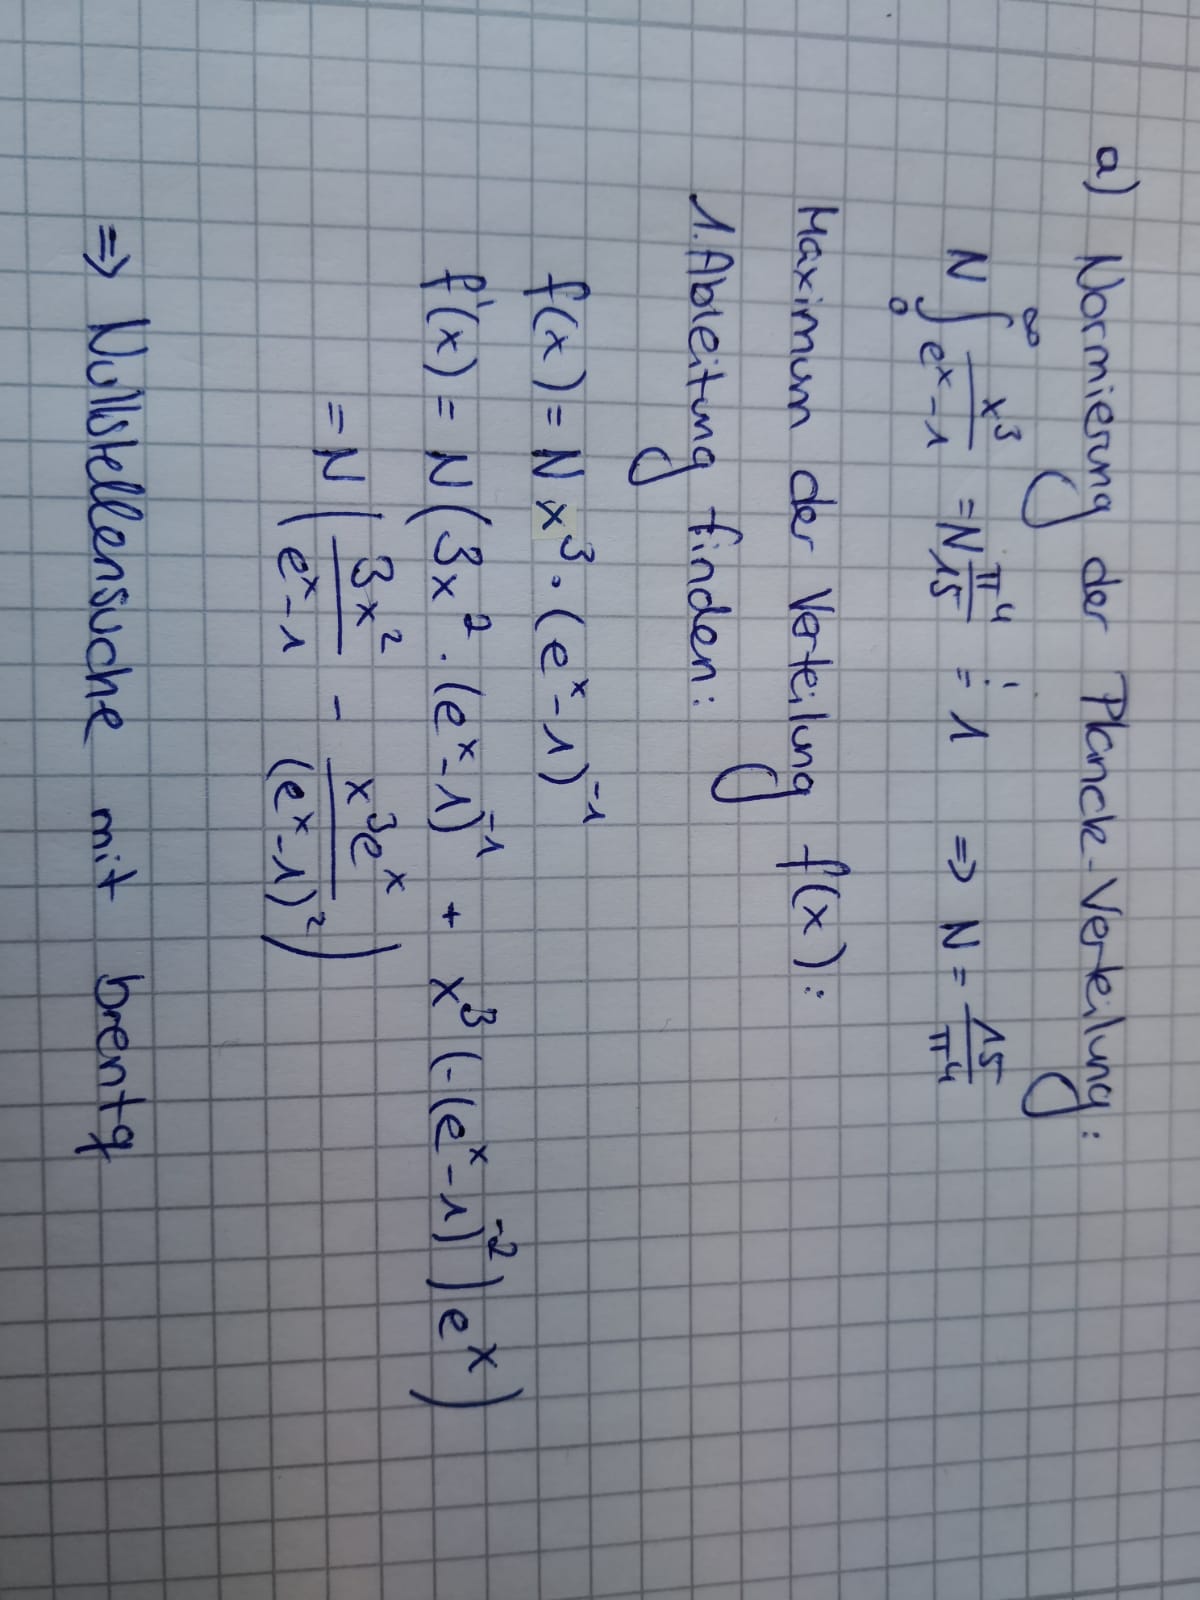 a) Normierung der Planck-Verteilung:
N ∫₀^∞ x³/(eˣ-1) = N π⁴/15 =! 1 ⇒ N = 15/π⁴
Maximum der Verteilung f(x):
1. Ableitung finden:
f(x) = N x³ · (eˣ-1)⁻¹
f'(x) = N (3x² · (eˣ-1)⁻¹ + x³ (-(eˣ-1)⁻²) eˣ)
= N ( 3x²/(eˣ-1) - x³eˣ/(eˣ-1)² )
⇒ Nullstellensuche mit brentq